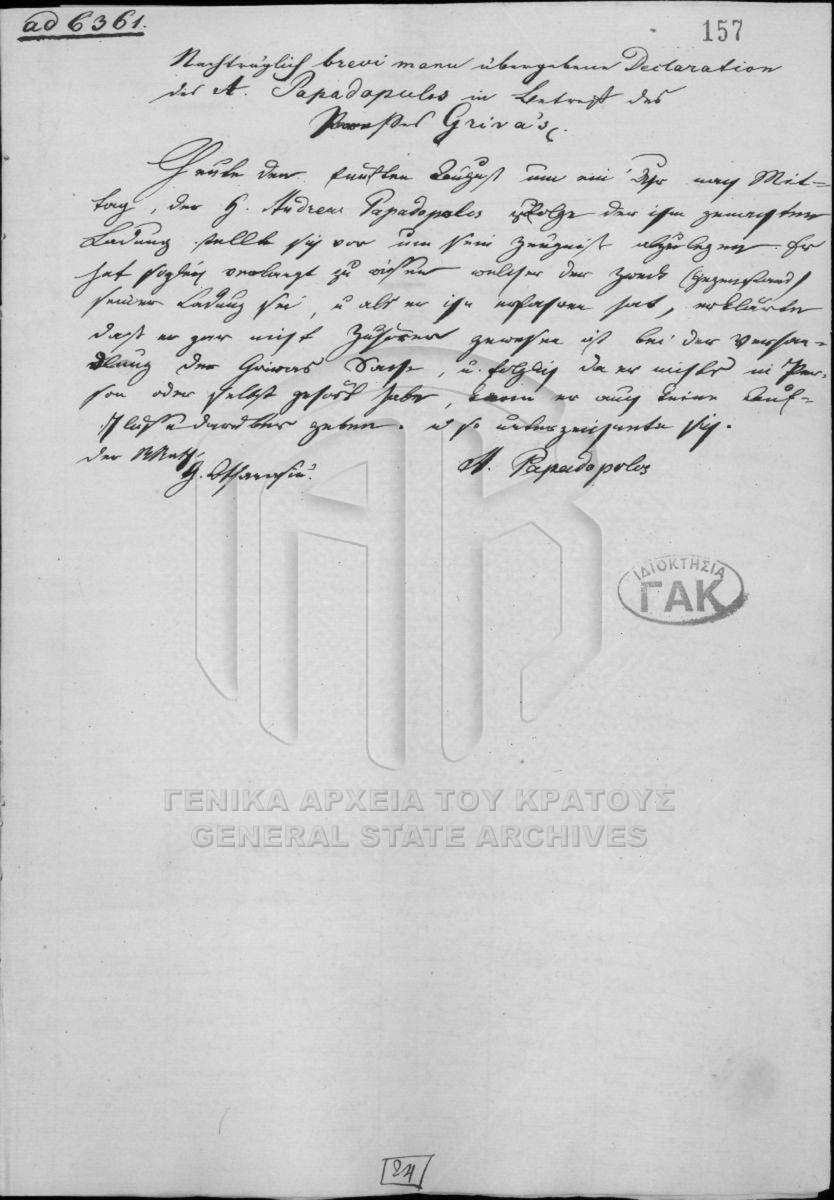 ad 6361.
157
Nachträglich brevi manu übergebene Declaration
des A. Papadopulos in Betreff des
Processes Griva's.
Heute den fünften August um ein Uhr nach Mit-
tag, der H. Andreas Papadopolos zufolge der ihm gemachten
Ladung stellte sich vor um sein Zeugniß abzulegen. Er
hat sogleich verlangt zu wissen welcher der Zweck (Gegenstand)
seiner Ladung sei, u als er ihn erfahren hat, erklärte
daß er gar nicht Zuhörer gewesen ist bei der Verhan-
dlung der Grivas Sache, u. folglich da er nichts in Per-
son oder selbst gehört habe, kann er auch keine Auf-
schlüsse darüber geben. u so unterzeichnete sich.
der
G. Athanasiu.
A. Papadopolos
ΙΔΙΟΚΤΗΣΙΑ
ΓΑΚ
ΓΕΝΙΚΑ ΑΡΧΕΙΑ ΤΟΥ ΚΡΑΤΟΥΣ
GENERAL STATE ARCHIVES
24